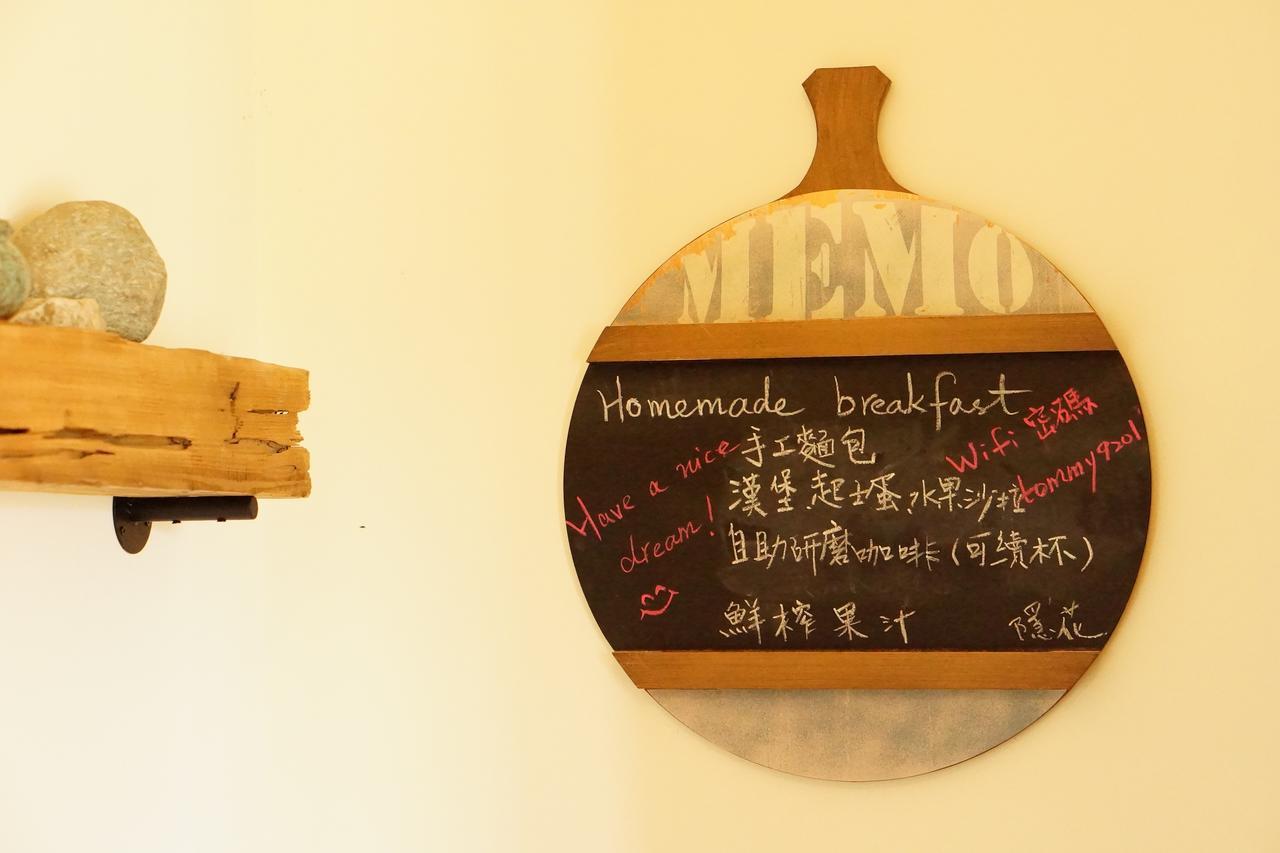 MEMO
Homemade breakfast
手工麵包
漢堡、起士蛋、水果沙拉
自助研磨咖啡卡(可續杯)
鮮榨果汁
隱花
Have a nice
dream!
Wifi 密碼
tommy9201